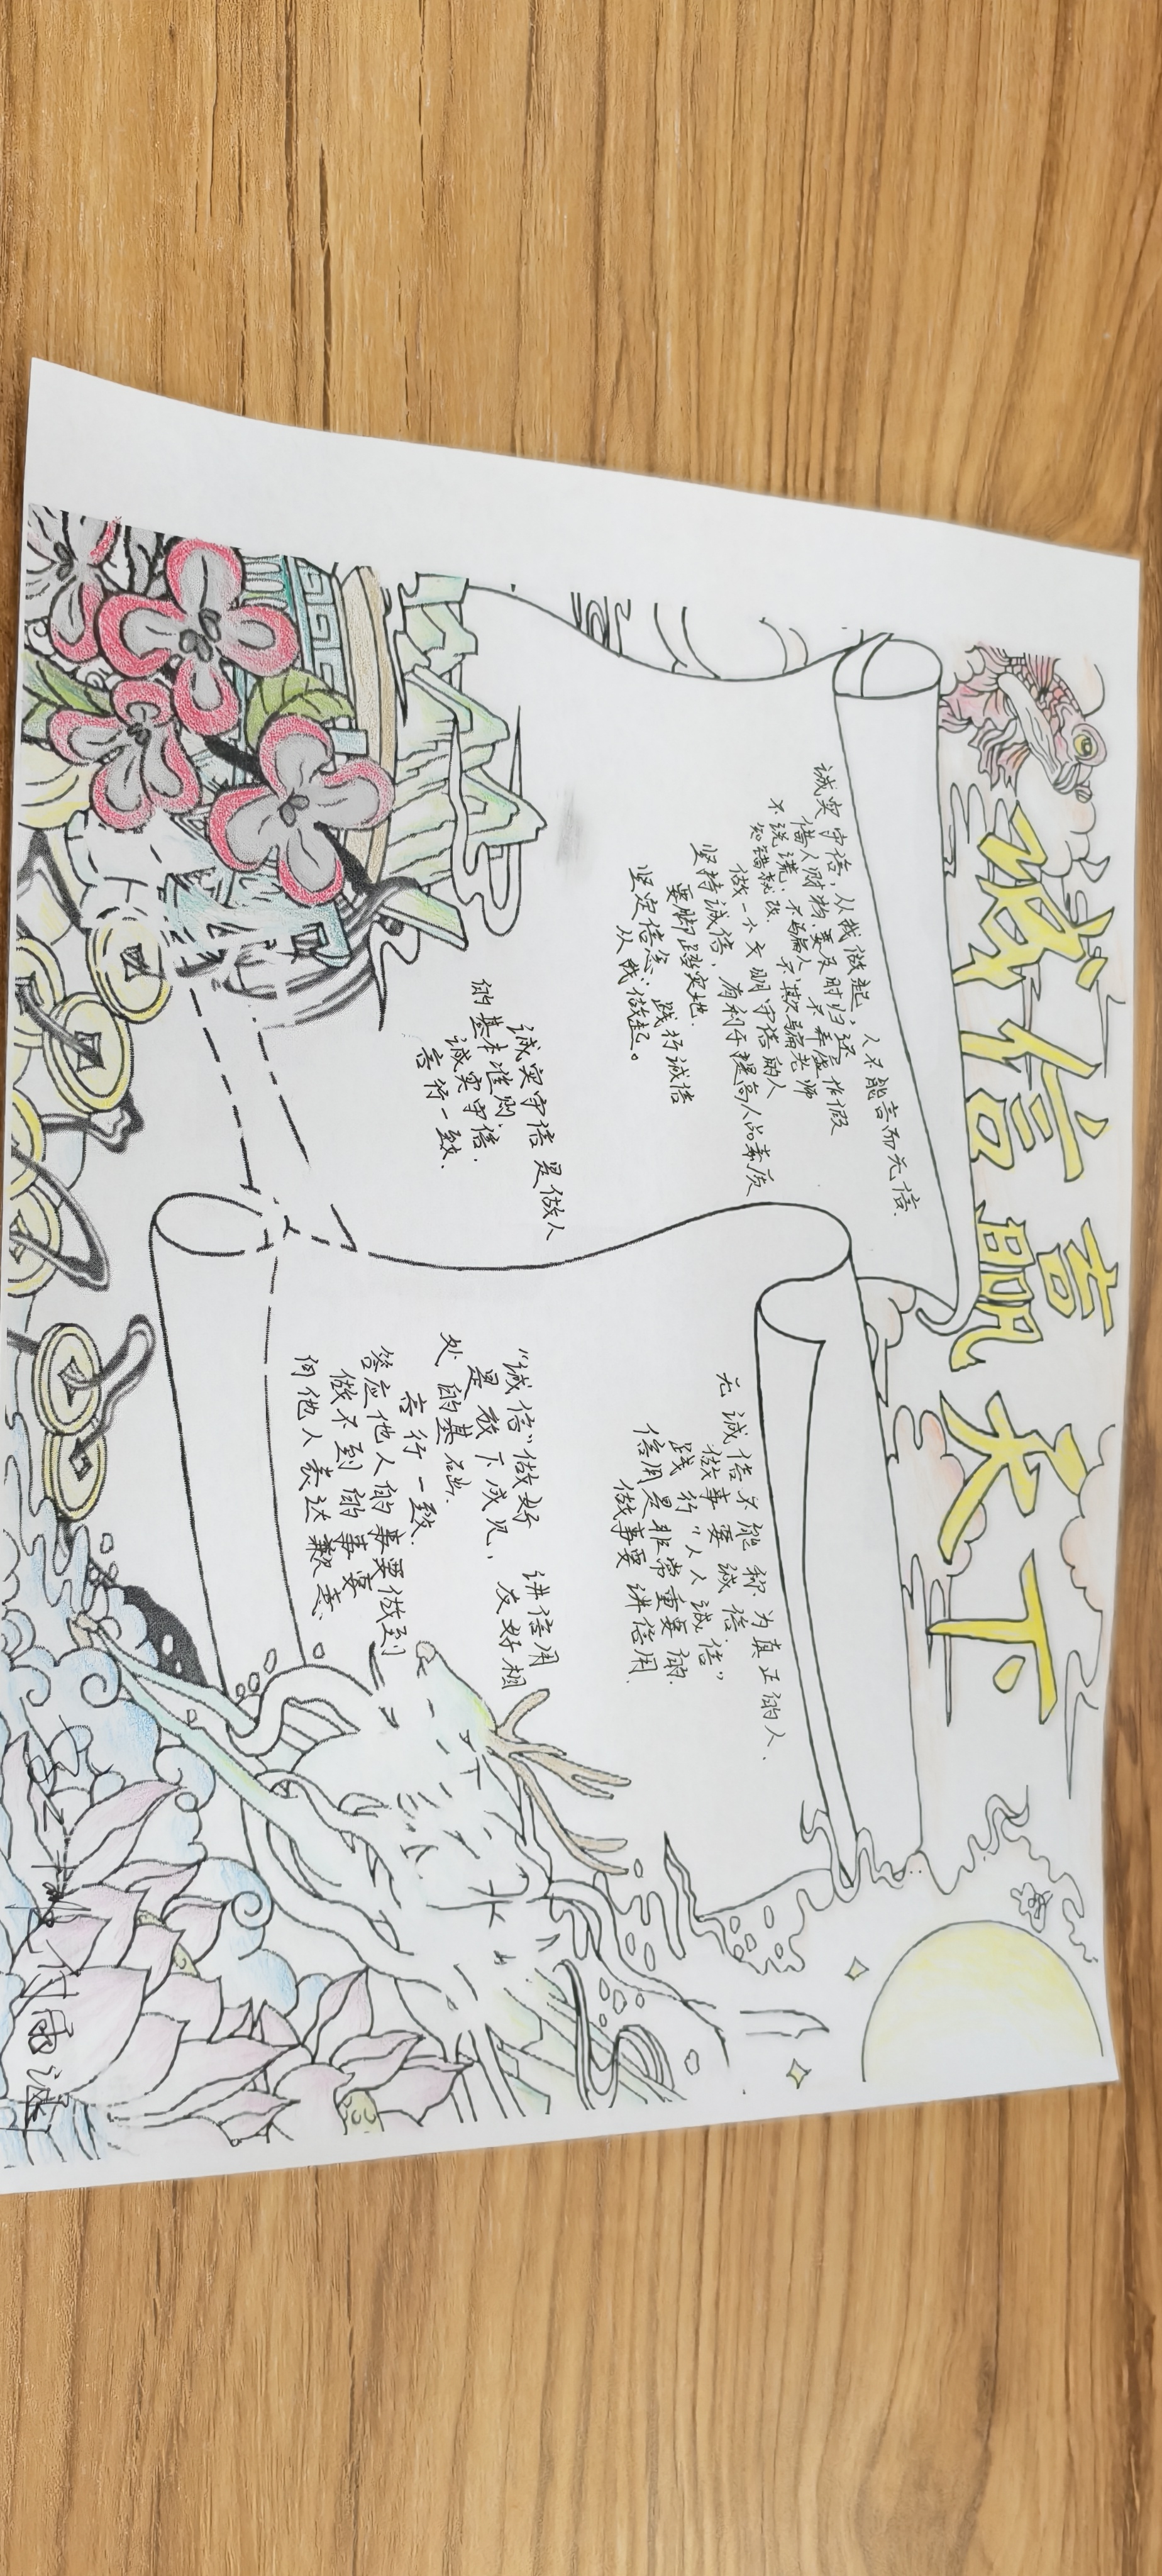 诚信赢天下
诚实守信，从我做起，人不能言而无信.
借人财物，要及时归还
不说谎，不骗人，不弄虚作假
知错就改.不欺骗老师
做一个文明守信的人
坚持诚信，有利于提高人品素质
要脚踏实地.
践行诚信
坚定信念，从我做起。
诚实守信是做人
的基本准则.
诚实守信.
言行一致.
无诚信不能称为真正的人.
做事要诚信.
践行“人人诚信”
信用是非常重要的.
做事要讲信用.
“诚信”做好 讲信用
是 下成见，友好相
处的基础.
言行一致.
答应他人的事要做到
做不到的事要
向他人表达歉意.